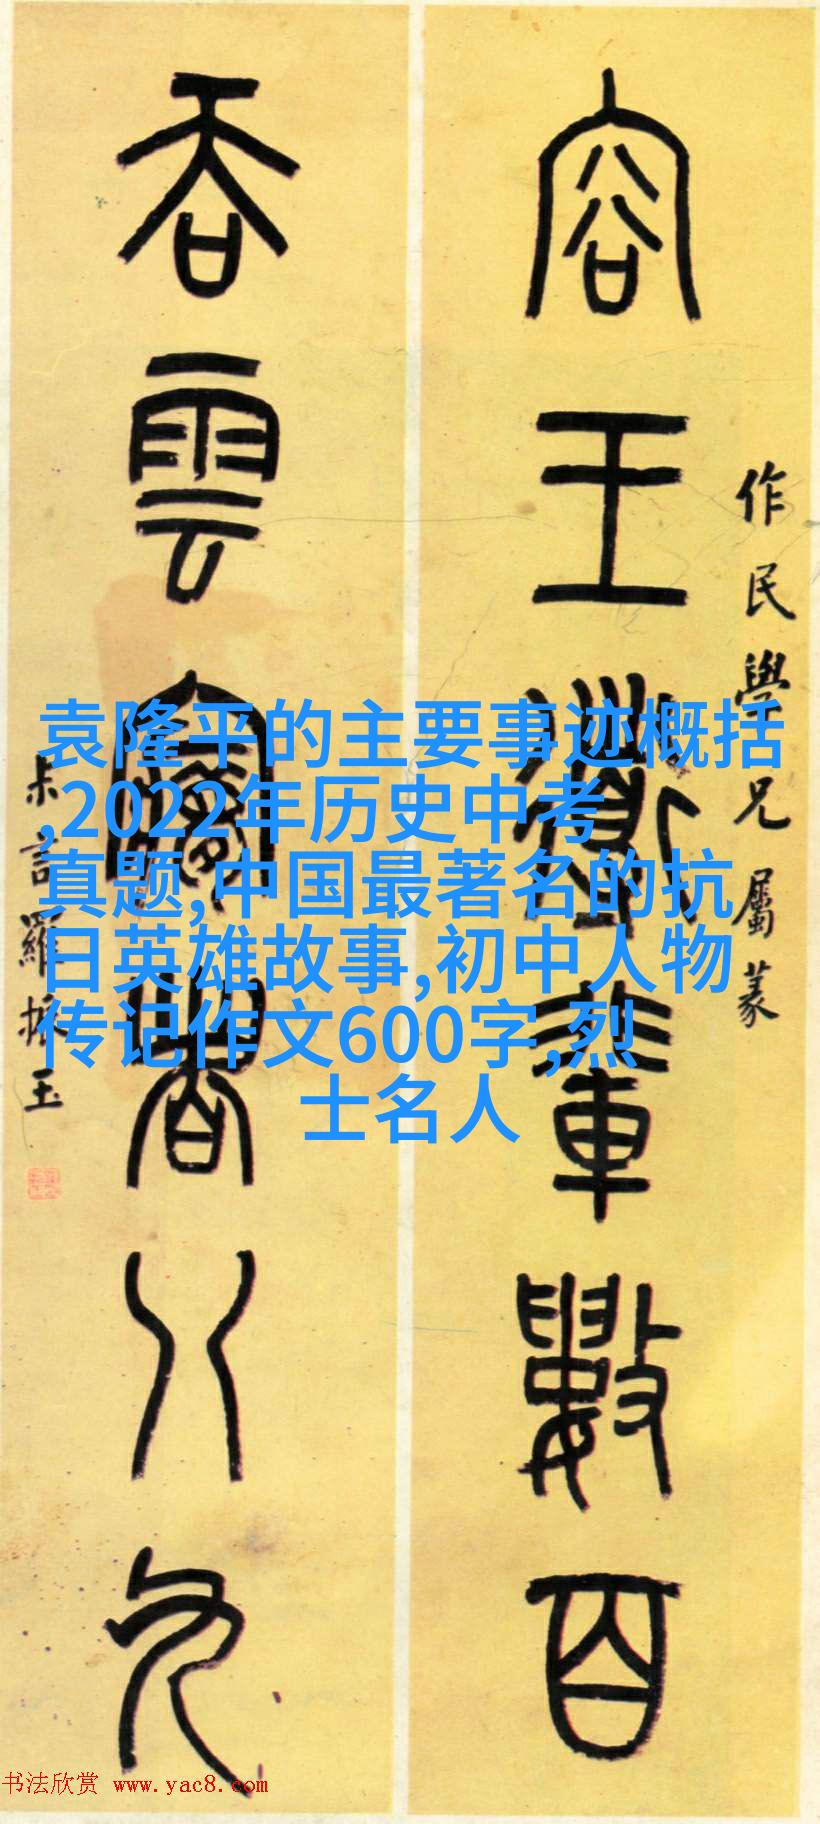 作民學兄屬篆
容王導輩數百
吞雲夢者八九
叔言羅振玉
袁隆平的主要事迹概括
,2022年历史中考
真题,中国最著名的抗
日英雄故事,初中人物
传记作文600字,烈
士名人
书法欣赏 www.yac8.com